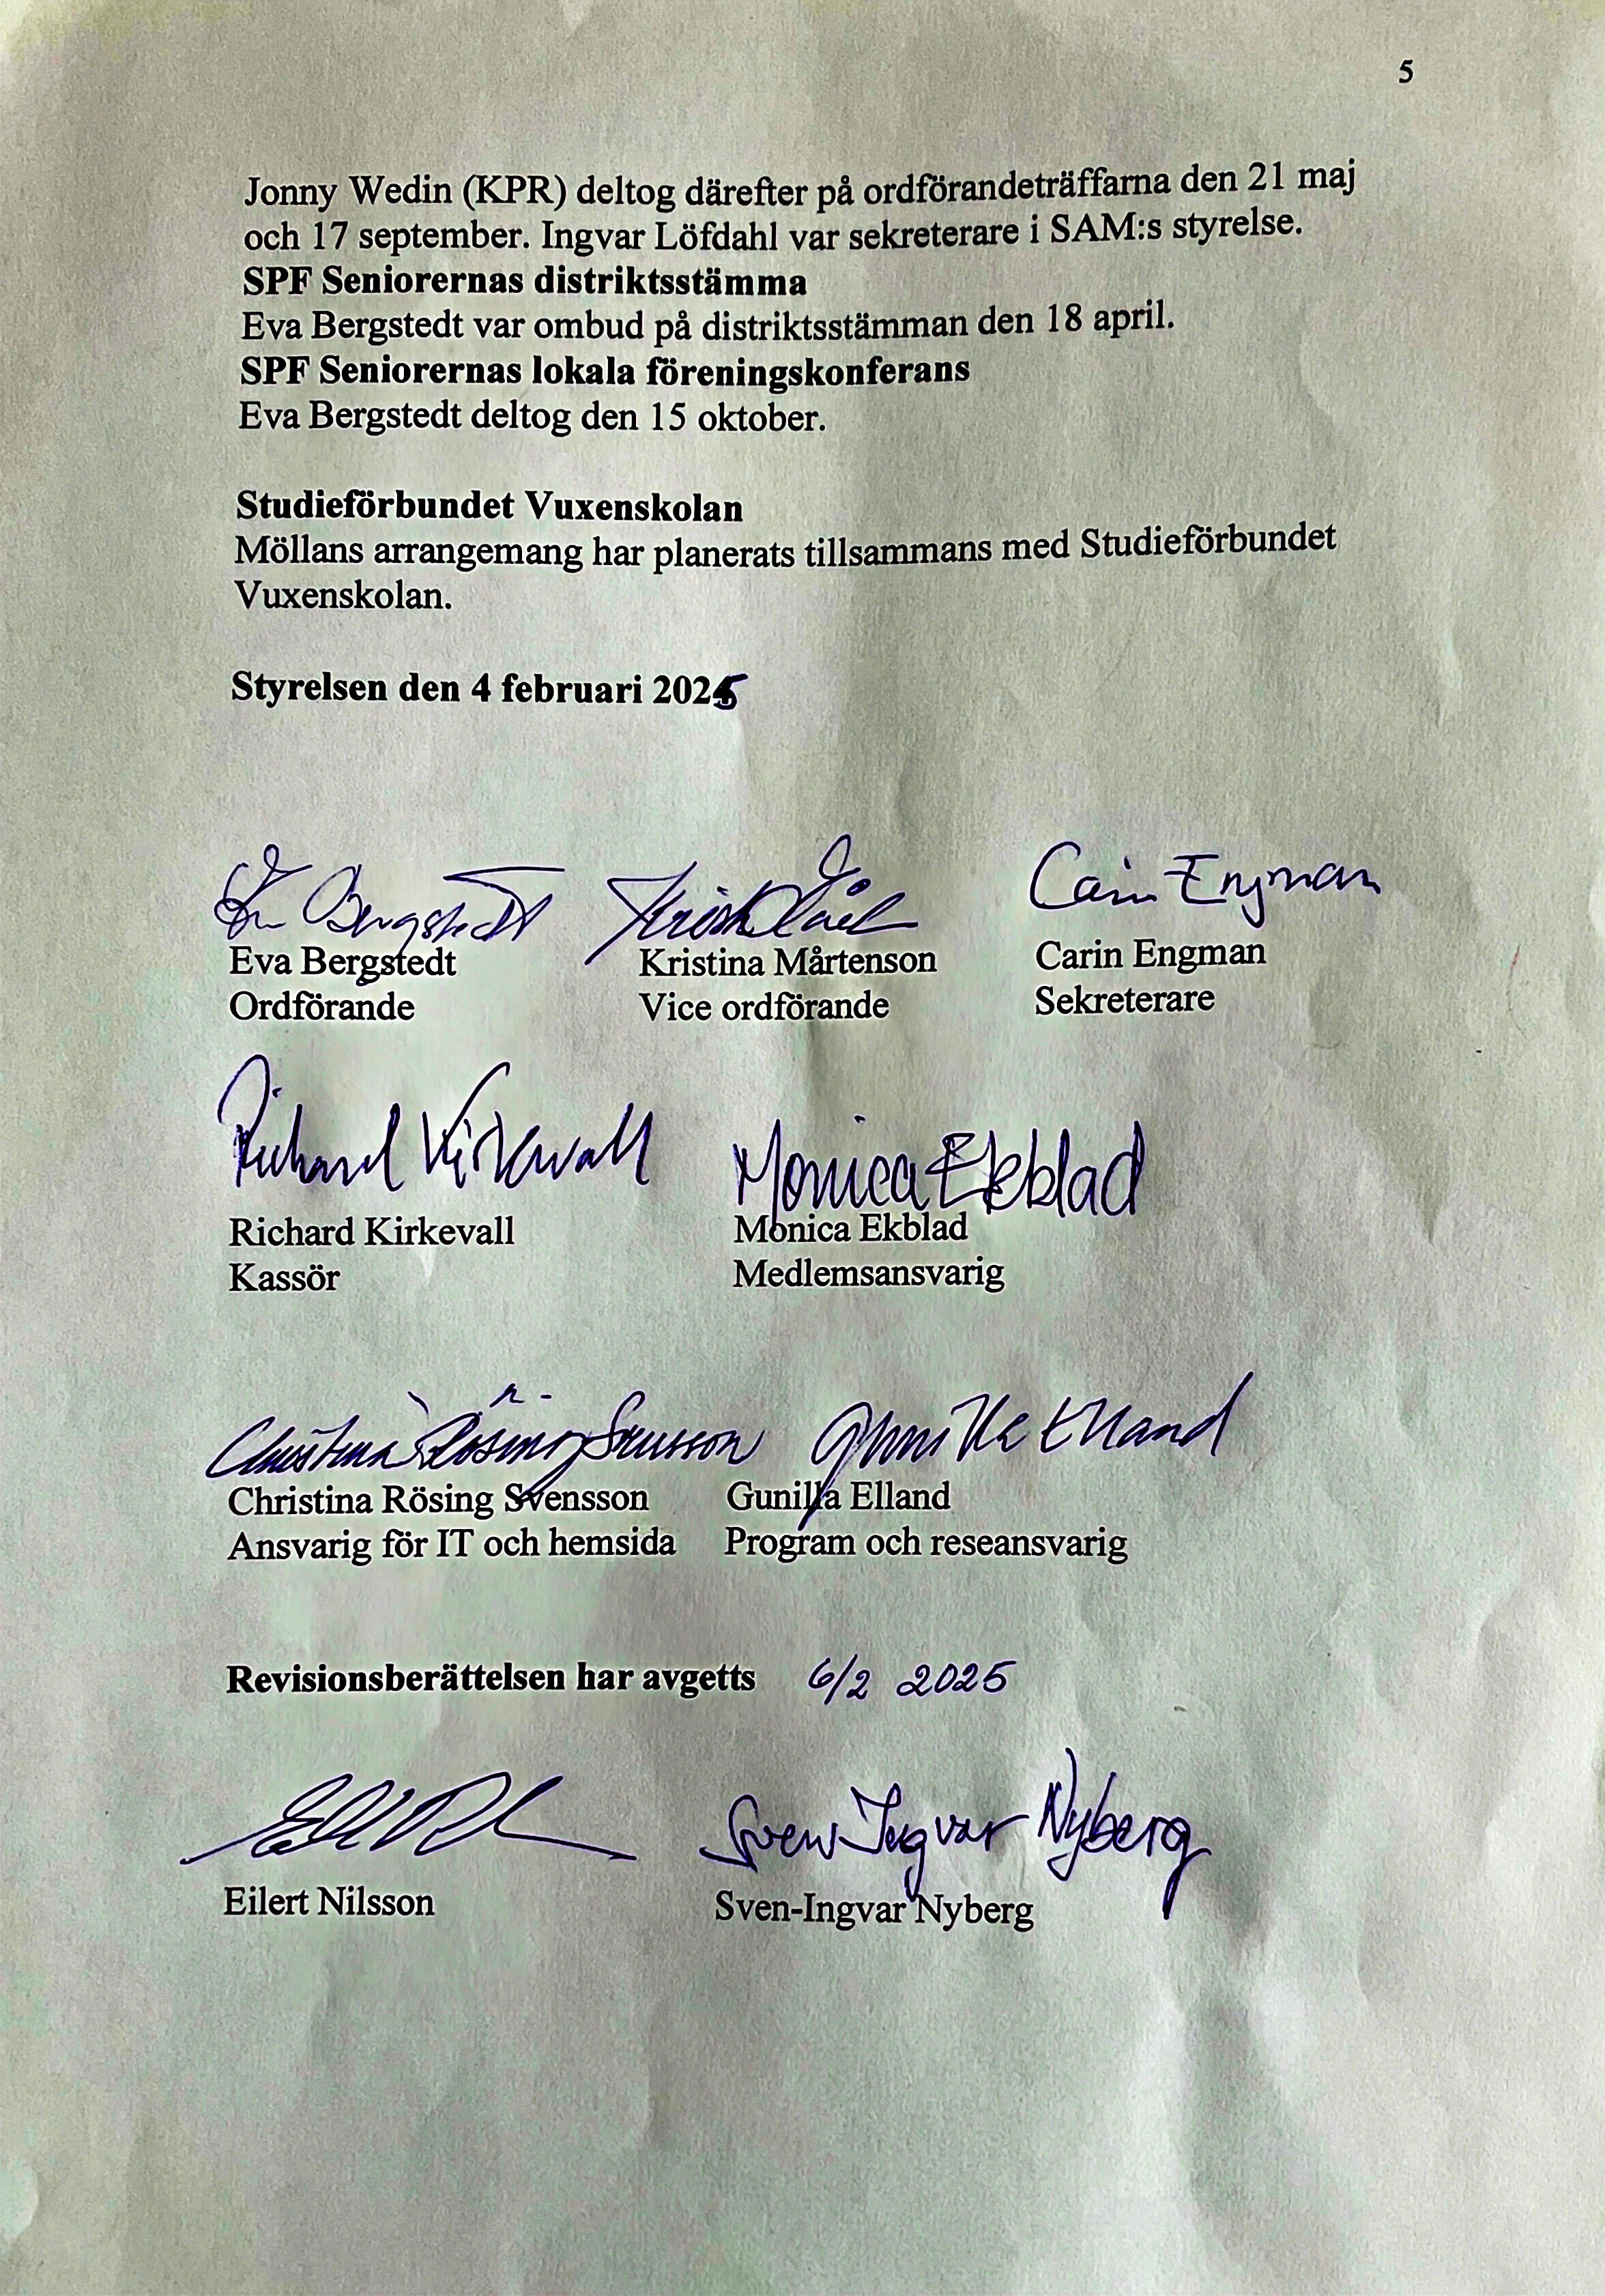 5
Jonny Wedin (KPR) deltog därefter på ordförandeträffarna den 21 maj
och 17 september. Ingvar Löfdahl var sekreterare i SAM:s styrelse.
SPF Seniorernas distriktsstämma
Eva Bergstedt var ombud på distriktsstämman den 18 april.
SPF Seniorernas lokala föreningskonferans
Eva Bergstedt deltog den 15 oktober.
Studieförbundet Vuxenskolan
Möllans arrangemang har planerats tillsammans med Studieförbundet
Vuxenskolan.
Styrelsen den 4 februari 2025
Eva Bergstedt Carin Engman
Eva Bergstedt Kristina Mårtenson Carin Engman
Ordförande Vice ordförande Sekreterare
Richard Kirkevall Monica Ekblad
Richard Kirkevall Monica Ekblad
Kassör Medlemsansvarig
Christina Rösing Svensson Gunilla Elland
Christina Rösing Svensson Gunilla Elland
Ansvarig för IT och hemsida Program och reseansvarig
Revisionsberättelsen har avgetts 6/2 2025
Sven Ingvar Nyberg
Eilert Nilsson Sven-Ingvar Nyberg